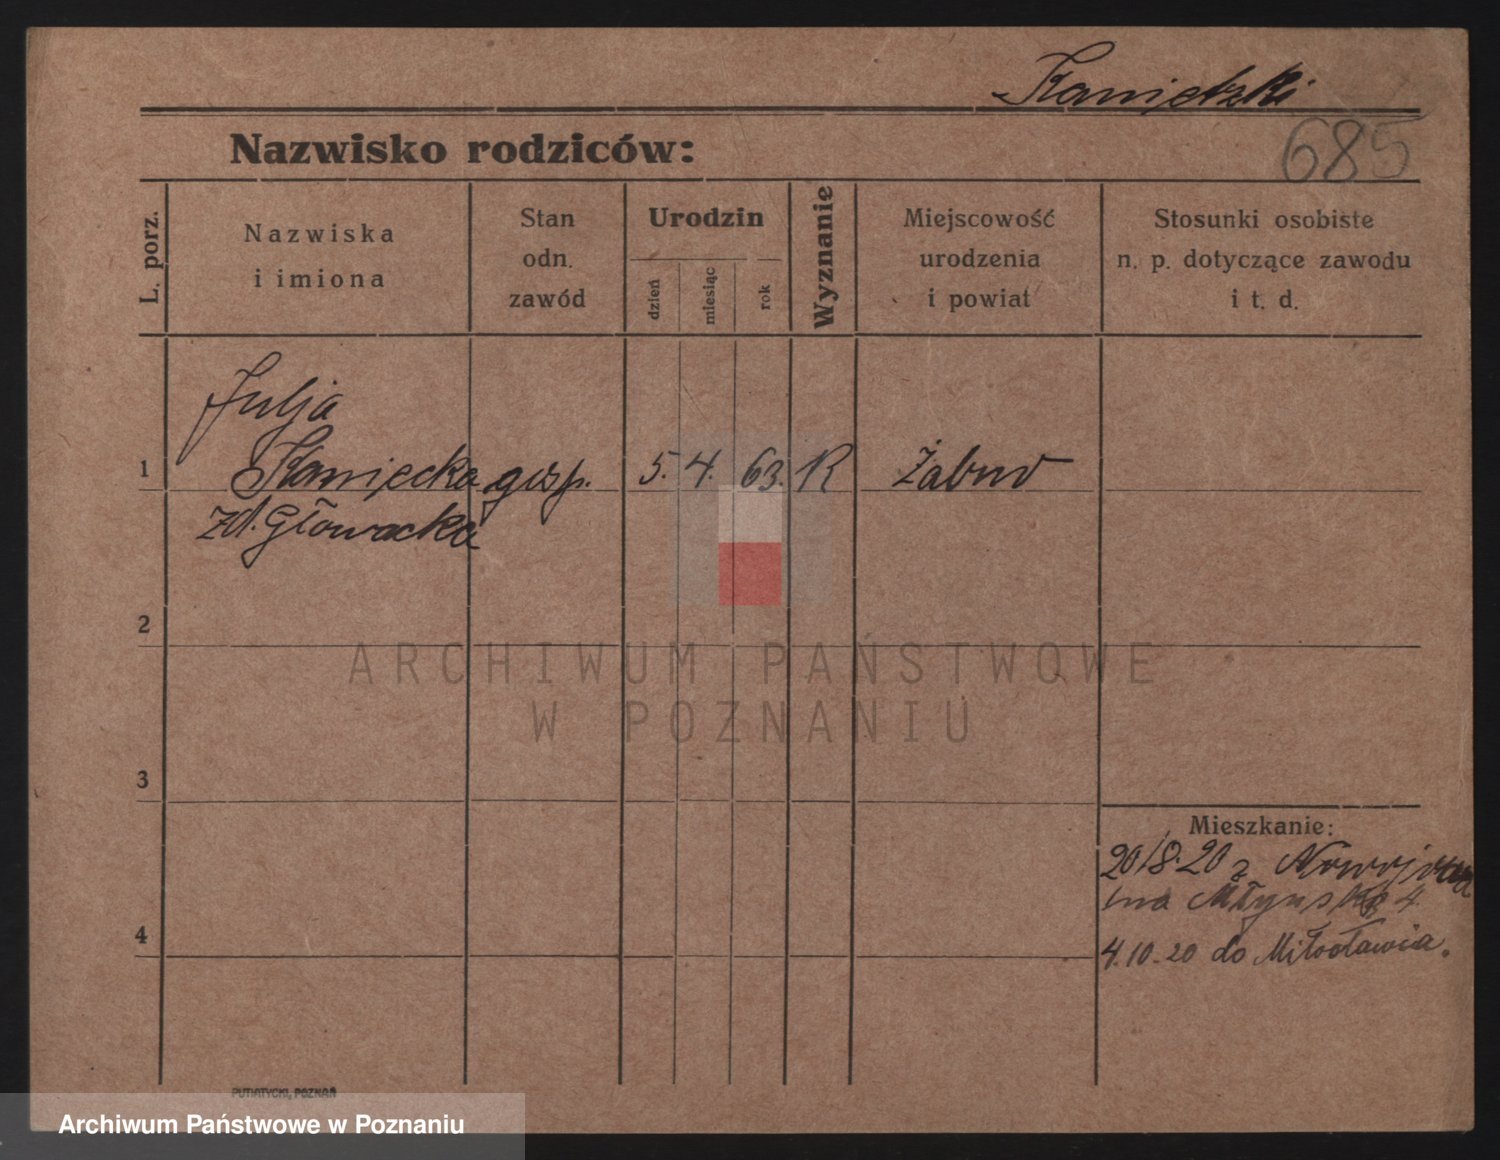 Kanietzki
Nazwisko rodziców:
685
L. porz.
Nazwiska
i imiona
Stan
odn.
zawód
Urodzin
dzień
miesiąc
rok
Wyznanie
Miejscowość
urodzenia
i powiat
Stosunki osobiste
n. p. dotyczące zawodu
i t. d.
Julja
1 Kaniecka gosp. 5. 4. 63. R Żabno
zd. Głowacka
2
ARCHIWUM PAŃSTWOWE
W POZNANIU
3
Mieszkanie:
20/8.20 z
na Młyńska 4
4
4.10.20 do Miłosławia.
PUTIATYCKI, POZNAŃ
Archiwum Państwowe w Poznaniu